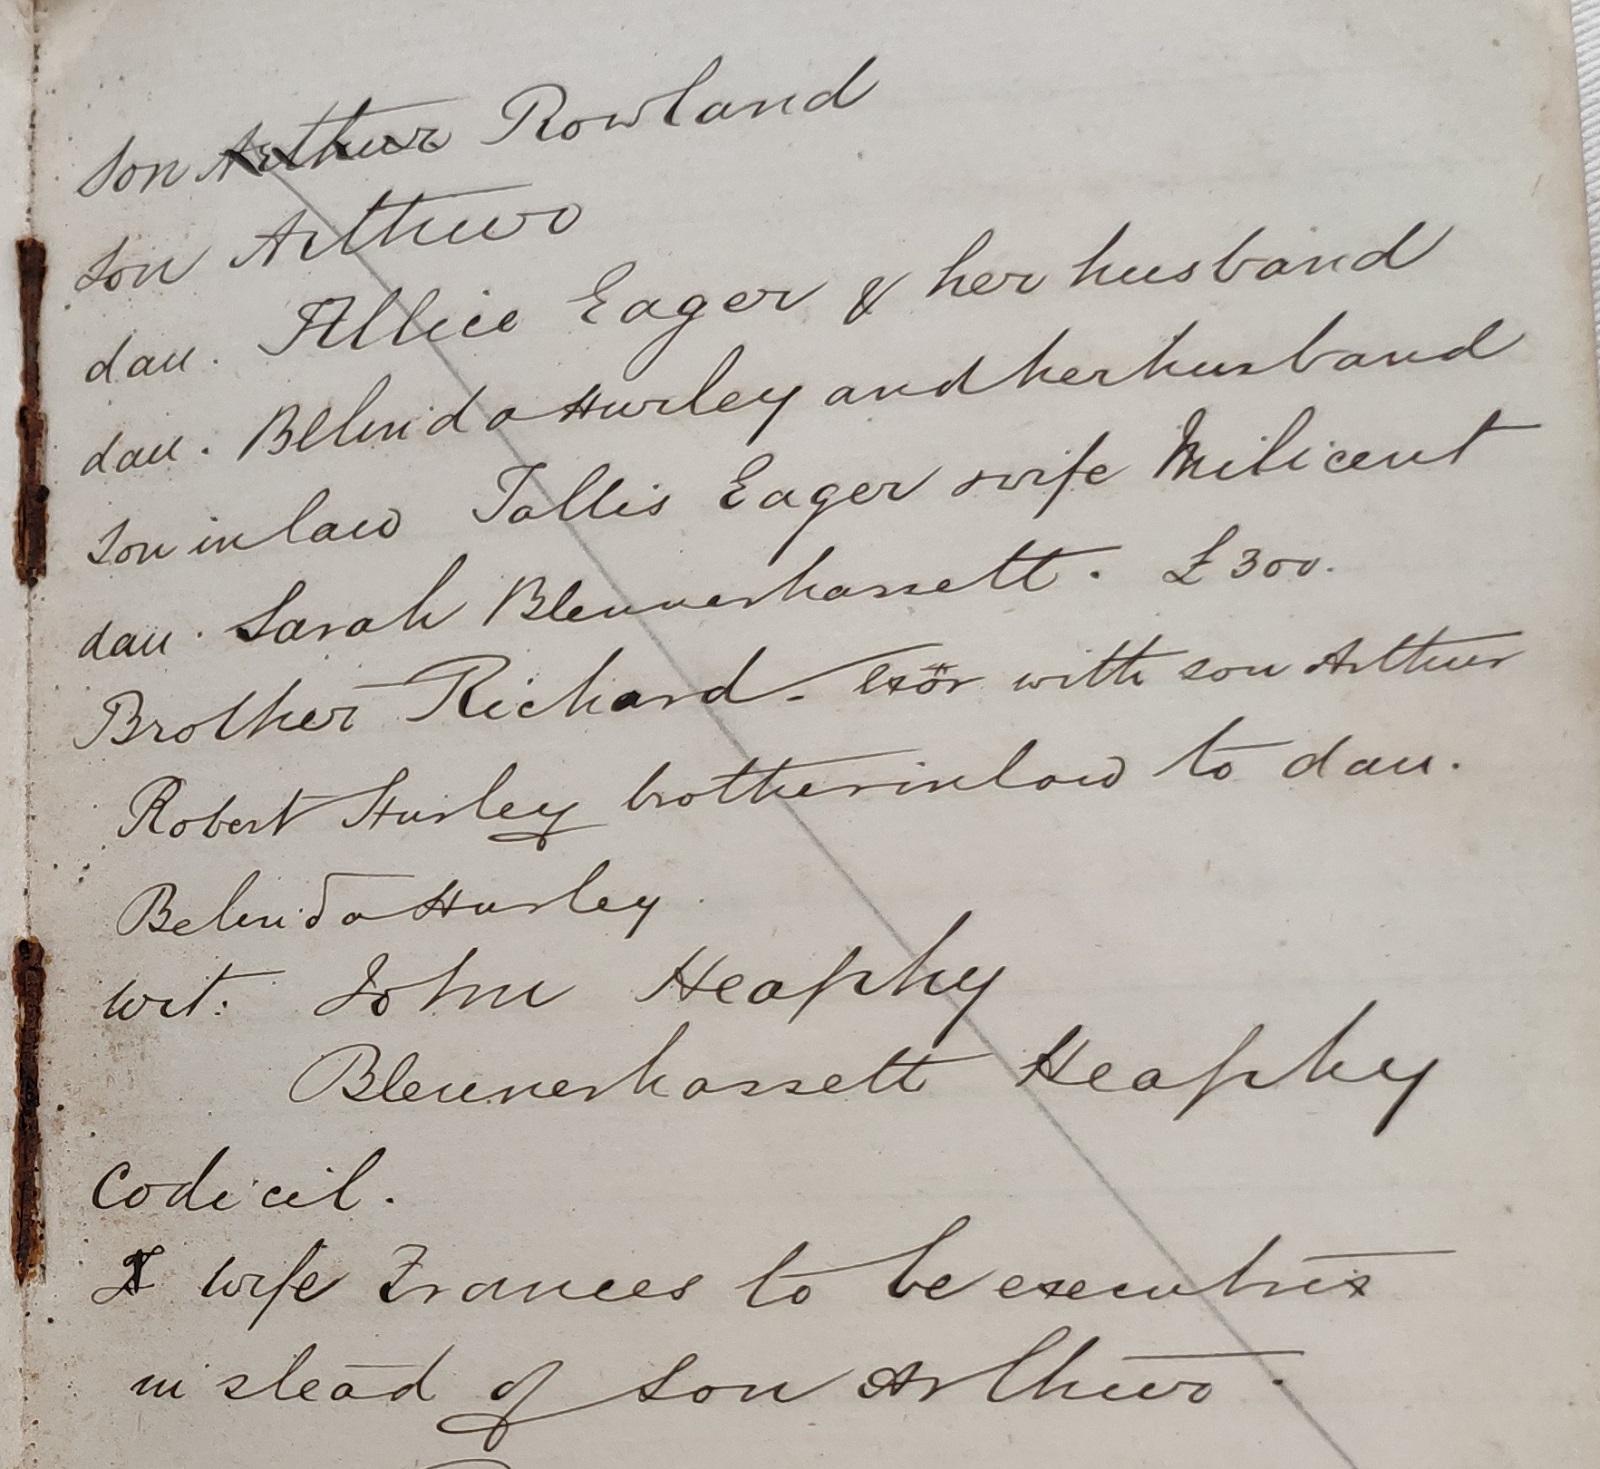 son Arthur Rowland
son Arthur
dau. Allice Eager & her husband
dau. Belinda Hurley and her husband
son in law Tallis Eager wife Milicent
dau. Sarah Blennerhassett. £300.
Brother Richard. Exör with son Arthur
Robert Hurley brother in law to dau.
Belinda Hurley
wit: John Heaphy
Blennerhassett Heaphy
Codicil.
wife Frances to be executrix
instead of son Arthur.